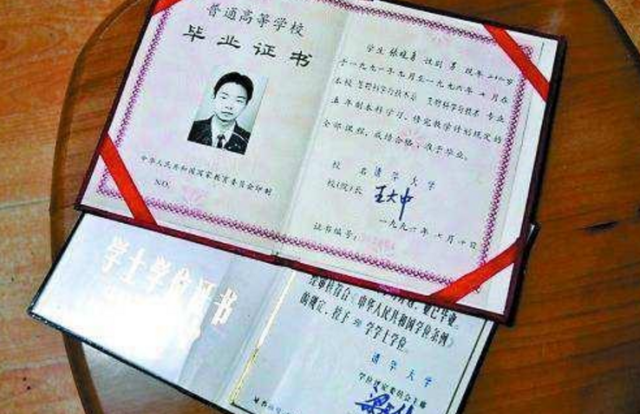 普通高等学校
毕业证书
中华人民共和国国家教育委员会印制
NO.
学生 张晓勇 性别 男 现年 二十四岁
于一九九一年九月至一九九六年七月在
本校
专业
五年制本科学习，修完教学计划规定的
全部课程，成绩合格，准予毕业。
校名 清华大学
校(院)长 王大中
一九九六年七月十日
证书编号:
学士学位证书
业已毕业。
经审核符合《中华人民共和国学位条例》
的规定，授予 学学士学位。
清华大学
学位评定委员会主席